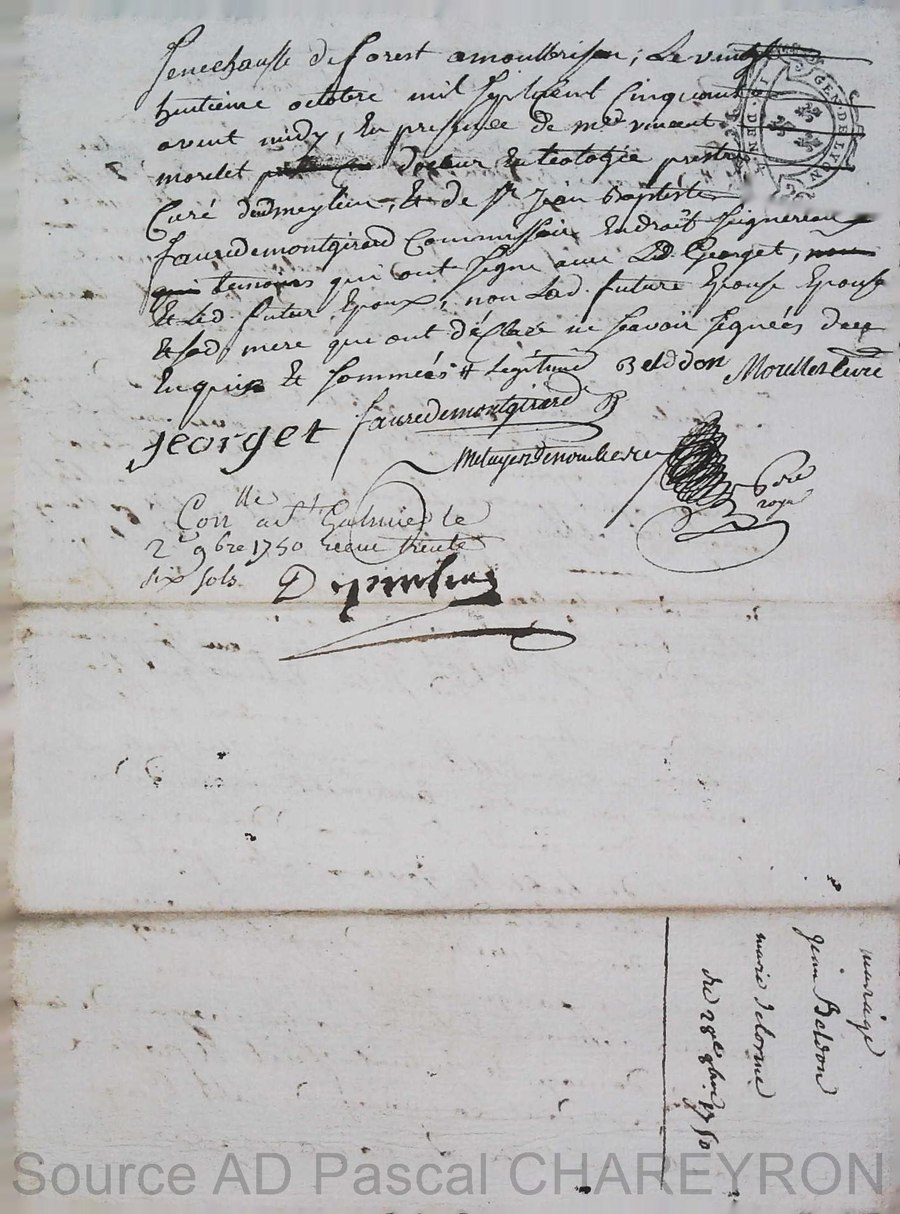 Senechausse de forest amontbrison, Le vingt
huitieme octobre mil sept cent Cinquante
avant midy, En presence de mre vincent
morelet docteur En teologie prestre
Curé et de Sr Jean baptiste
fauredemontgirard Commissaire En droit Seigneriau
temoins qui ont Signe avec Led Georget,
Et Led. futur Epoux, non Lad. future Epouse Epouse
Et Sad. mere qui ont déclaré ne Scavoir Signer de ce
Enquis Et Sommées # legitime Beldon Morellet Curé
jeorget fauredemontgirard
nore
royal
Conlle a St Galmier le
2e 9bre 1750 recu trente
six sols
mariage
jean Beldon
marie delorme
du 28e 8bre 1750
GEN. DE LYON
Source AD Pascal CHAREYRON